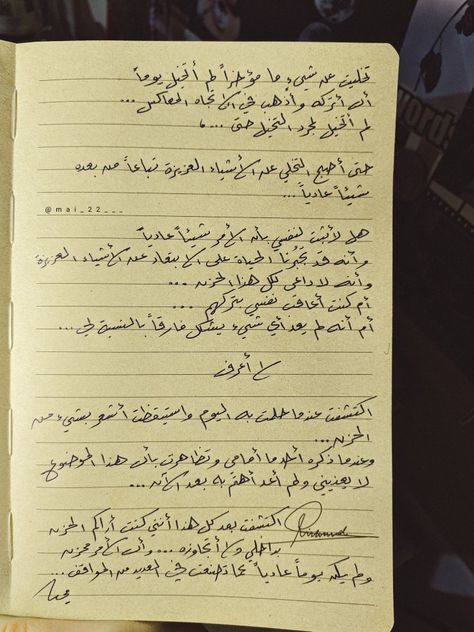 تخليت عن شيءٍ ما مؤخراً لم أتخيل يوماً
أن أتركه وأذهب في الاتجاه المعاكس ...
لم أتخيل لمجرد التخيل حتى ...
حتى أصبح التخلي عن الأشياء العزيزة تباعاً من بعده
شيئاً عادياً ...
@mai_22___
هل لأثبت لنفسي بأن الأمر شيئاً عادياً
وأنه قد تجبرنا الحياة على الابتعاد عن الأشياء العزيزة
وأنه لا داعي لكل هذا الحزن ...
أم كنت أعاقب نفسي بتركهم ...
أم أنه لم يعد أي شيء يشكل فارقاً بالنسبة لي ...
لا أعرف
اكتشفت عندما حلمت به اليوم واستيقظت أشعر بشيء من
الحزن ...
وعندما ذكره أحدما أمامي وتظاهرت بأن هذا الموضوع
لا يعنيني ولم أعد أهتم به بعد الآن ...
اكتشفت بعد كل هذا أنني كنت أراكم الحزن
بداخلي ولا أتجاوزه ... وأن الأمر محزن
ولم يكن يوماً عادياً كما تصنعت في العديد من المواقف ...